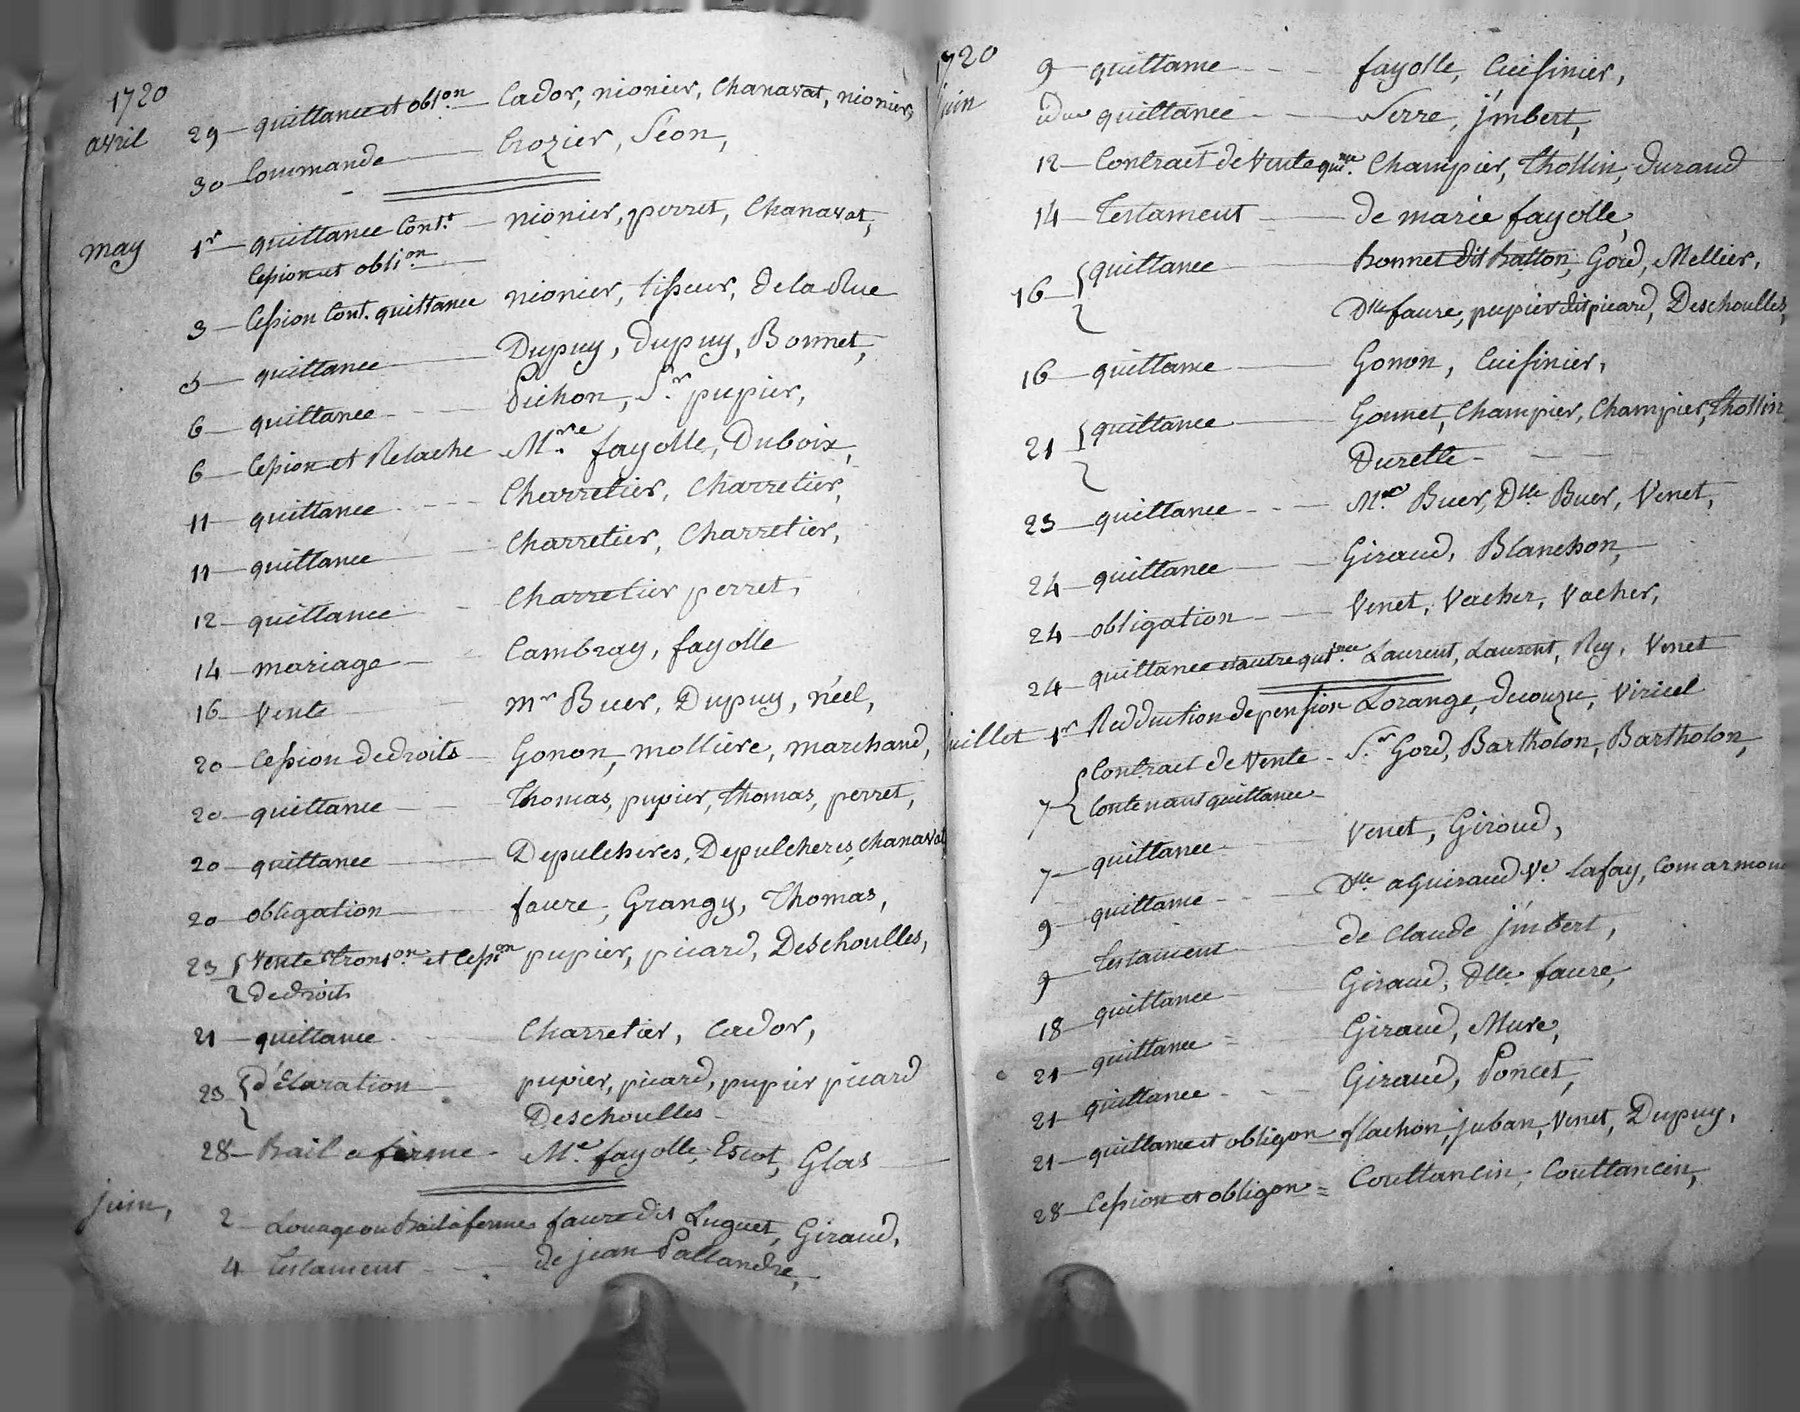 1720
avril 29 — quittance et obl.on — Cador, nionier, Chanavat, nionier,
30 — Commande — Crozier, Séon,
may 1r — quittance Cont.t — nionier, perret, Chanavat,
Cession et obli.on —
3 — Cession Cont. quittance nionier, tisseur, dela Rue
5 — quittance — Dupuy, dupuy, Bonnet,
6 — quittance - - Pichon, S.r pupier,
6 — Cession et Relache M.re fayolle, Duboix,
11 — quittance - - Charretier, Charretier,
11 — quittance — Charretier, Charretier,
12 — quittance - Charretier perret,
14 — mariage - - Cambray, fayolle
16 — Vente mr Buer, Dupuy, néel,
20 — Cession de droits — Gonon, mollière, marchand,
20 — quittance — Thomas, pupier, thomas, perret,
20 — quittance — Depulcheres, Depulcheres, chanavat
20 — obligation — faure, Grangy, Thomas,
23 { Vente trans.on et Cess.on pupier, picard, Deschoulles,
de droits
21 — quittance - Charretier, Cador,
23 { déclaration — pupier, picard, pupier picard
Deschoulles —
28 — Bail a ferme - M.e fayolle, Escot, Glas —
juin, 2 — Louage ou Bail à ferme faure dit Luguet, Giraud,
4 — testament - - de jean Pallandre,
1720
juin 9 — quittance - - fayolle, Cuisinier,
quittance - - Serre, jmbert,
12 — Contract de Vente qu.ne Champier, thollin, durand
14 — testament — de marie fayolle,
16 — { quittance — Bonnet dit Batton, Goud, Mellier,
Dlle faure, pupier dit picard, Deschoulles,
16 — quittance — Gonon, Cuisinier,
21 — { quittance — Gonnet, Champier, Champier, thollin
Durette - - -
23 — quittance - - M.e Buer, Dlle Buer, Venet,
24 — quittance — Giraud, Blanchon,
24 — obligation - - Venet, Vacher, vacher,
24 — quittance et autre quit.nce Laurent, Laurent, Rey, Venet
juillet 1r Redduction de pension Lorange, decouzu, viricel
7 — { Contract de Vente - S.r Gord, Bartholon, Bartholon,
Contenant quittance -
7 — quittance - Venet, Giroud,
9 — quittance - - Dlle aGuiraud Ve lafay, Comarmond
9 — testament de Claude jmbert,
18 — quittance - Giraud, Dlle faure,
21 — quittance = Giraud, Mure,
21 — quittance - - Giraud, Poncet,
21 — quittance et obligon flachon, juban, Venet, Dupuy,
28 — Cession et obligon = Couttancin, Couttancin,